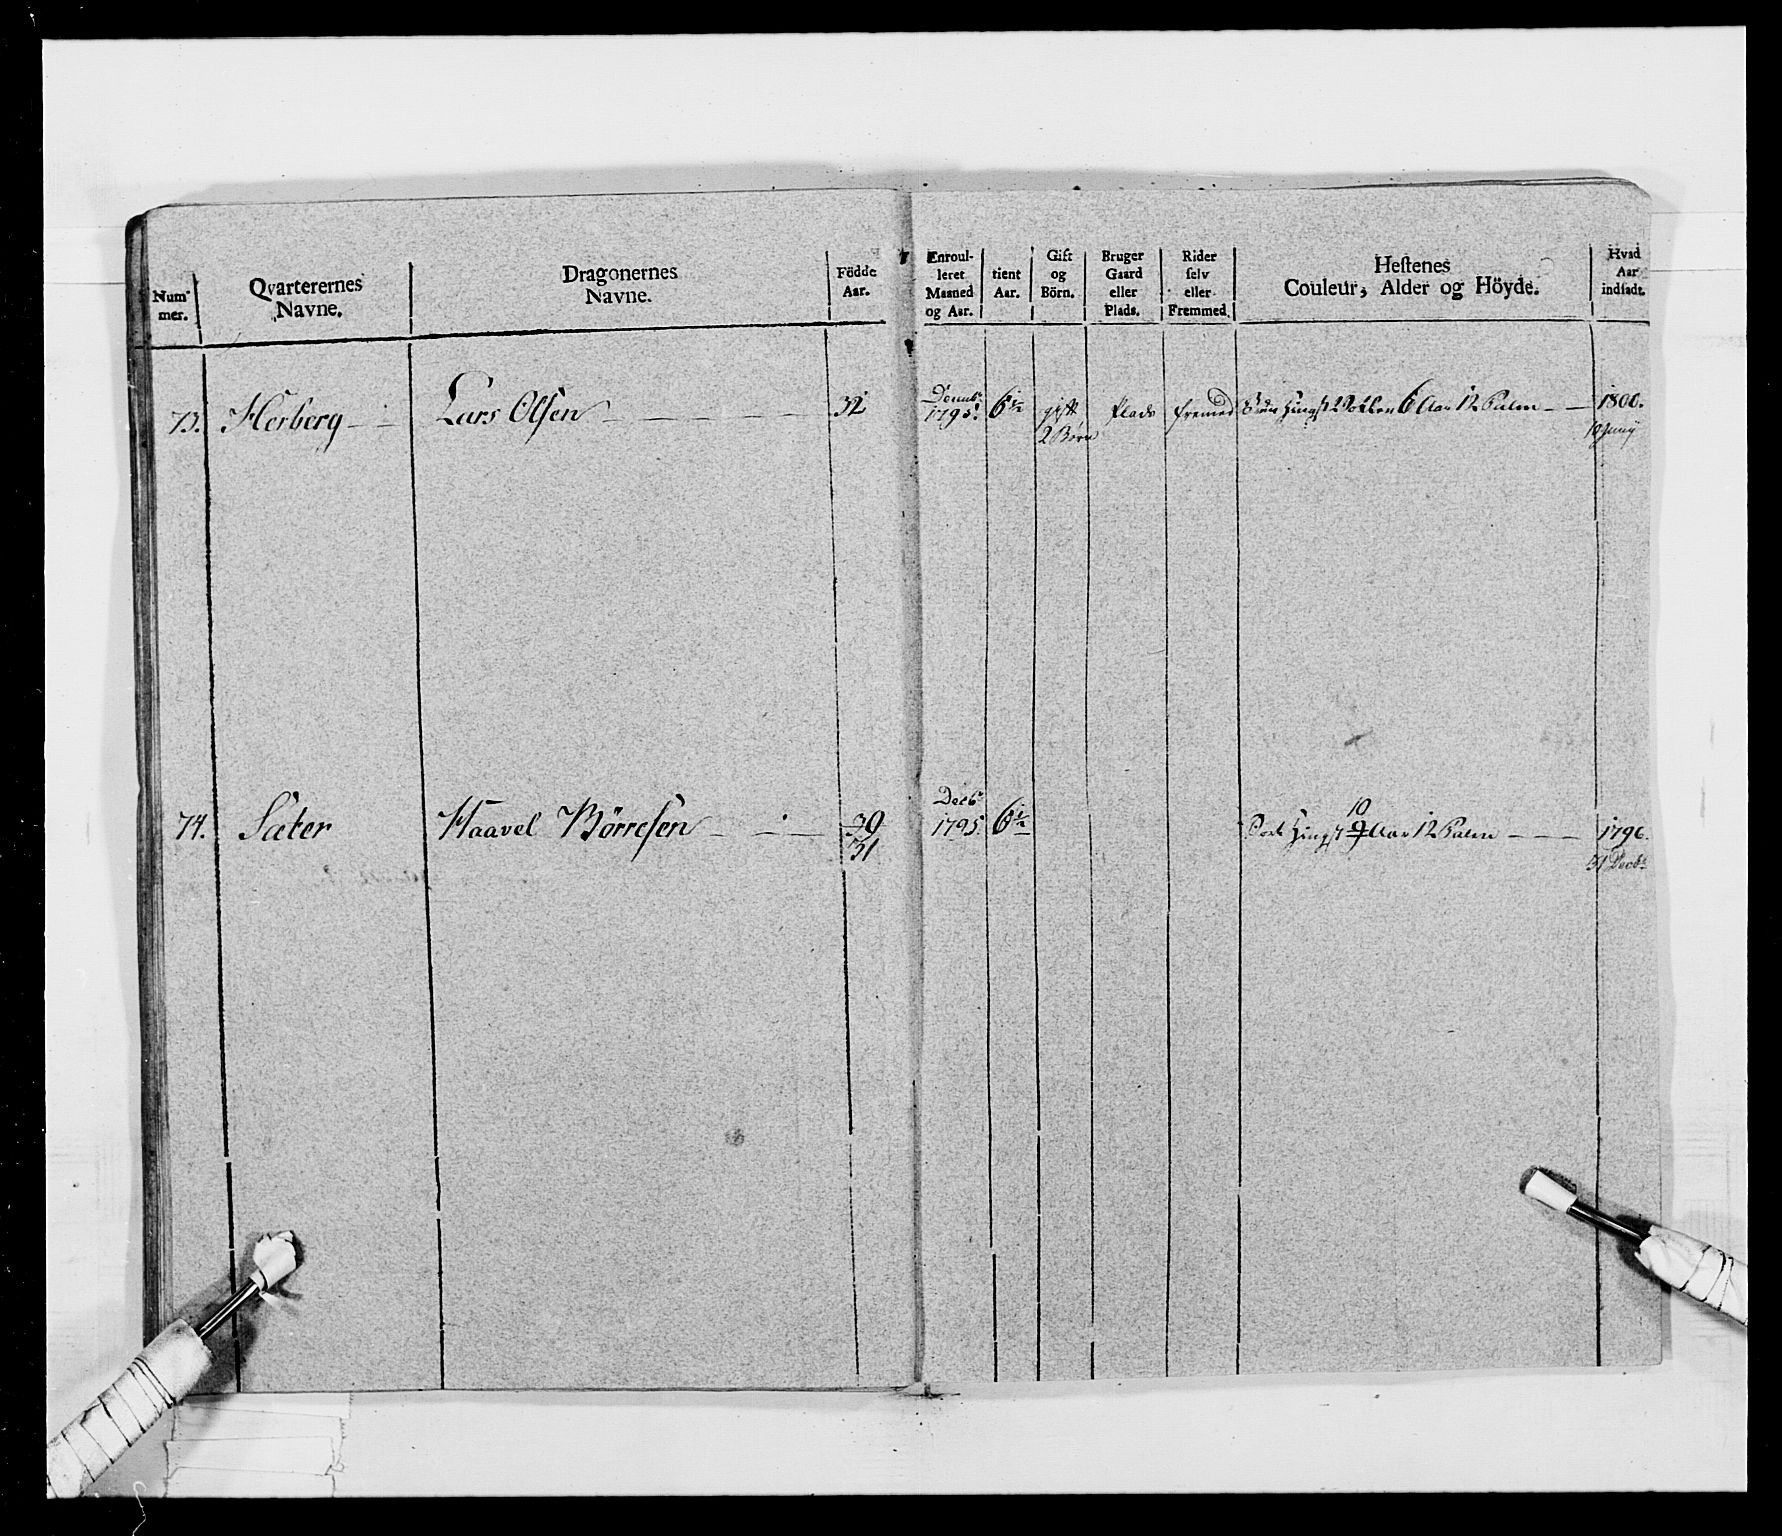 Num-
mer.
Qvarterernes
Navne.
Dragonernes
Navne.
Födde
Aar.
Enroul-
leret
Maaned
og Aar.
tient
Aar.
Gift
og
Börn.
Bruger
Gaard
eller
Plads.
Rider
selv
eller
Fremmed.
Hestenes
Couleur, Alder og Höyde.
Hvad
Aar
indsadt.
73. Herberg Lars Olsen 32 1795. 6½ gift Plads fremed Hingst 6 Aar 12 Palm 1800.
2 Börn
Juny
10
74. Sæter Haavel Börresen 30 Decbr 1795. 6½ Hingst 9 Aar 12 Palm 1796.
31
31 Decbr